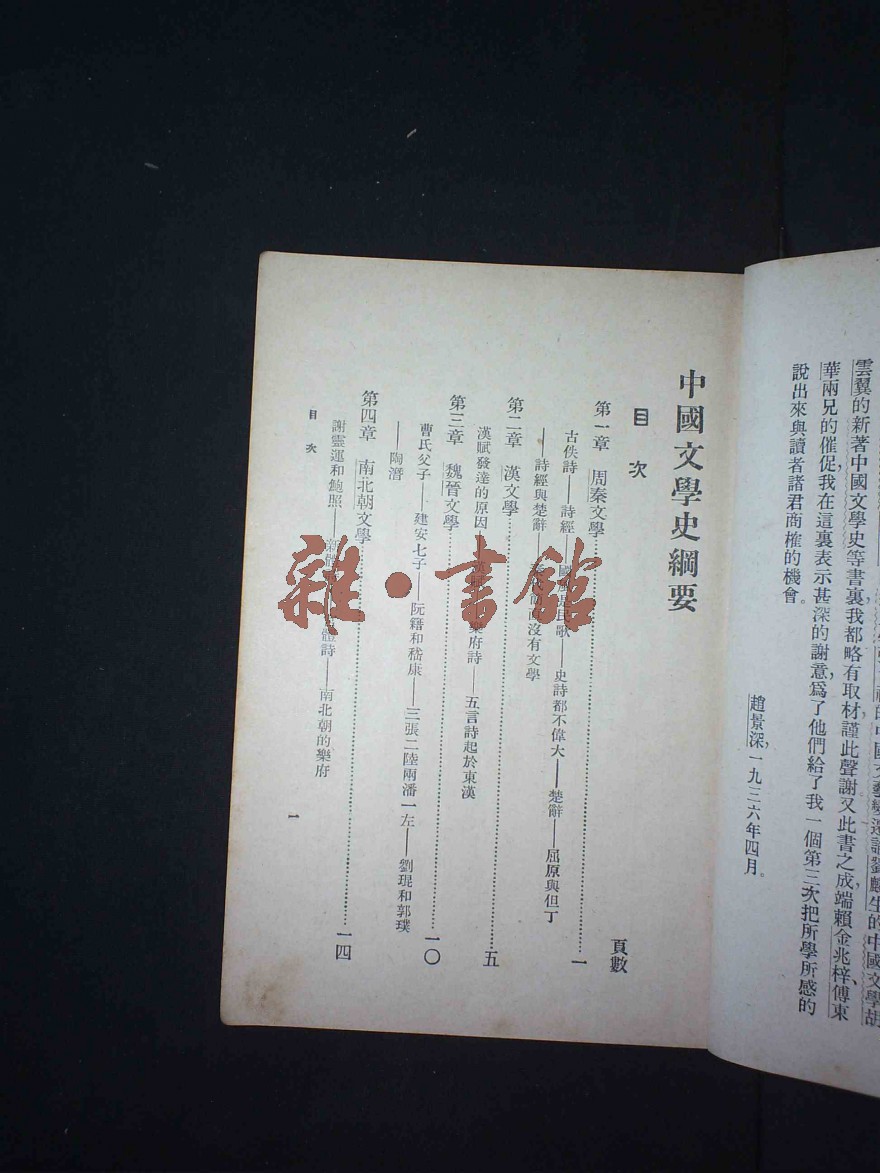 雲翼的新著中國文學史等書裏我都略有取材謹此聲謝又此書之成端賴金兆梓、傅東
華兩兄的催促我在這裏表示甚深的謝意,爲了他們給了我一個第三次把所學所感的
說出來與讀者諸君商榷的機會。
趙景深,一九三六年四月。
中國文學史綱要
目次
頁數
第一章 周秦文學……一
古佚詩——詩經——國風是民歌——史詩都不偉大——楚辭——屈原與但丁
——詩經與楚辭——秦代沒有文學
第二章 漢文學……五
漢賦發達的原因——漢賦——樂府詩——五言詩起於東漢
第三章 魏晉文學……一〇
曹氏父子——建安七子——阮籍和嵇康——三張二陸兩潘一左——劉琨和郭璞
——陶潛
第四章 南北朝文學……一四
謝靈運和鮑照——新體詩——南北朝的樂府
目次
一
雜·書館